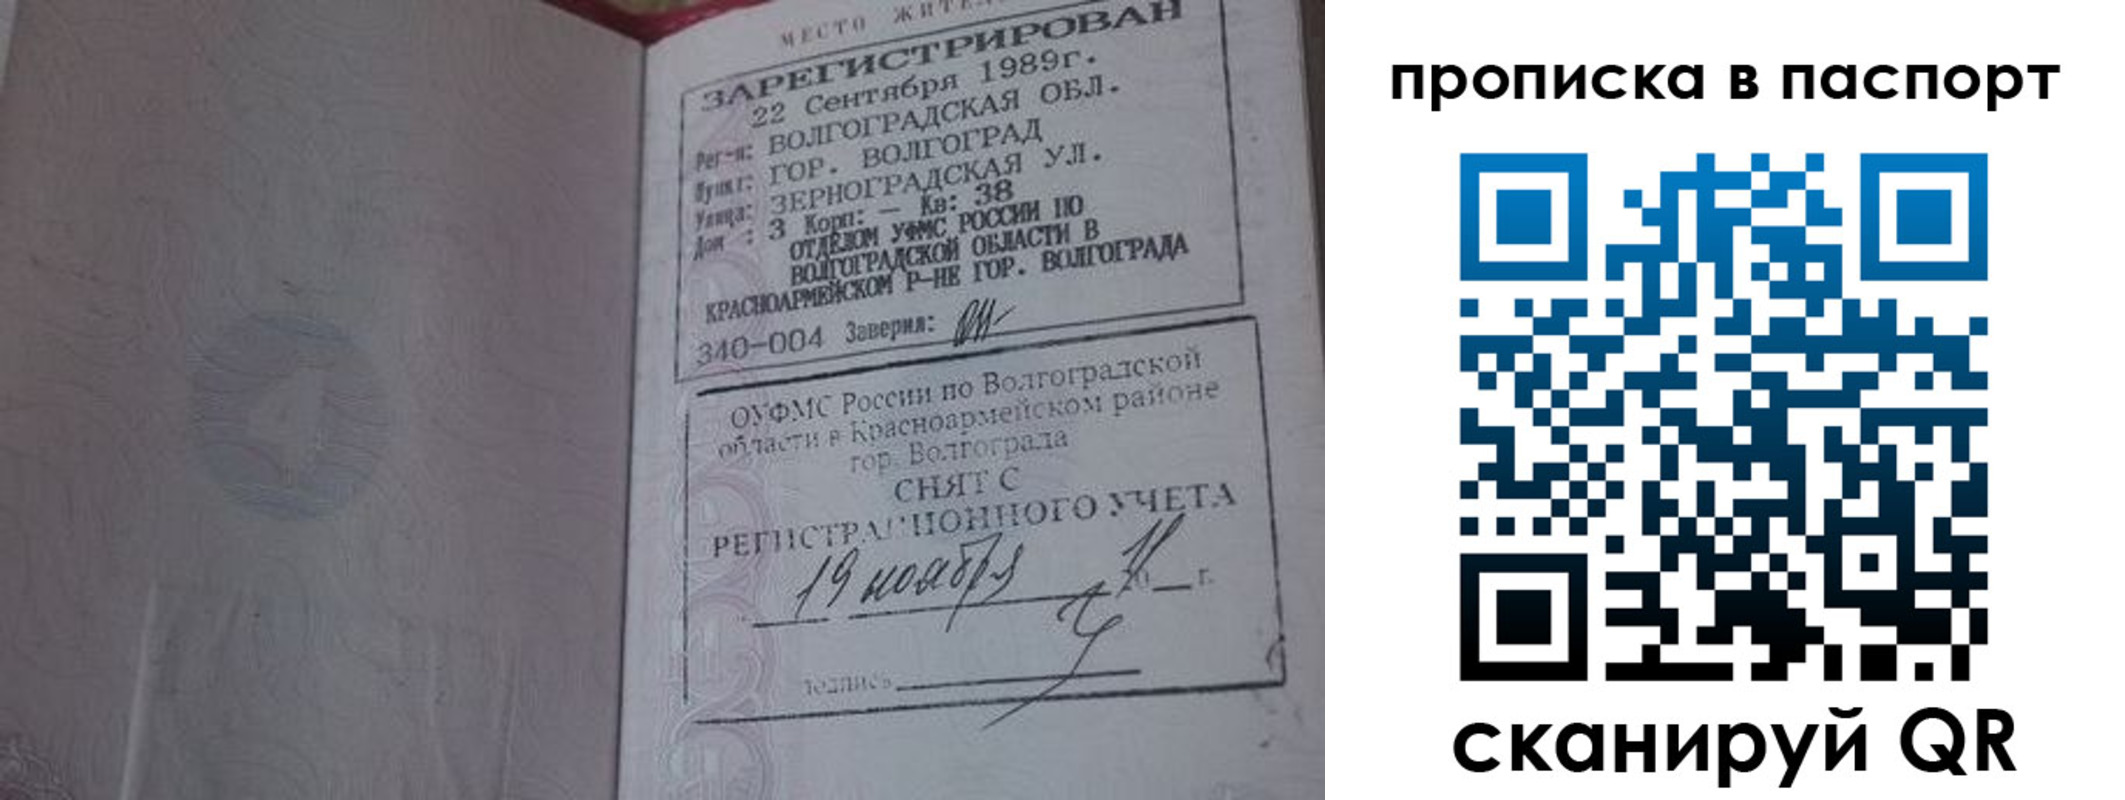 МЕСТО
ЗАРЕГИСТРИРОВАН
22 Сентября 1989г.
Рег-н: ВОЛГОГРАДСКАЯ ОБЛ.
Пункт: ГОР. ВОЛГОГРАД
Улица: ЗЕРНОГРАДСКАЯ УЛ.
Дом : 3 Корп: — Кв: 38
ОТДЕЛОМ УФМС РОССИИ ПО
ВОЛГОГРАДСКОЙ ОБЛАСТИ В
КРАСНОАРМЕЙСКОМ Р-НЕ ГОР. ВОЛГОГРАДА
340-004 Заверил:
ОУФМС России по Волгоградской
области в Красноармейском районе
гор. Волгограда
СНЯТ С
РЕГИСТРАЦИОННОГО УЧЕТА
19 ноября 20 г.
подпись
прописка в паспорт
сканируй QR